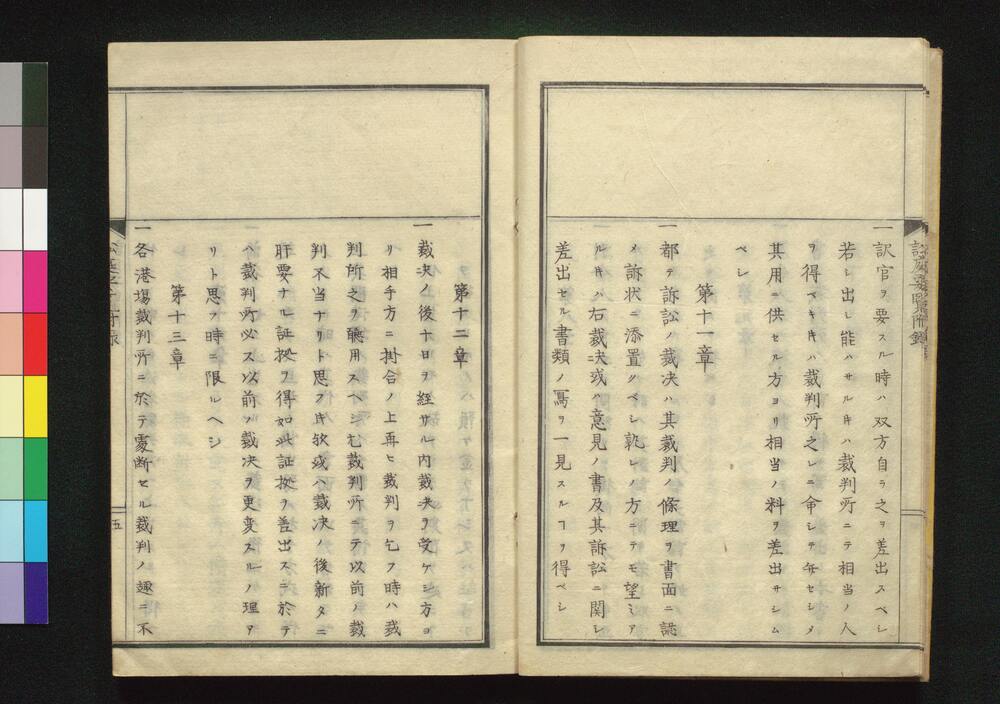 一訳官ヲ要スル時ハ双方自ラ之ヲ差出スベシ
若シ出シ能ハサルキハ裁判所ニテ相当ノ人
ヲ得ベキキハ裁判所之レニ命シテ任セシタ
其用ニ供セル方ヨリ相当ノ料ヲ差出サシム
ベシ
第十一章
一都テ訴訟ノ裁决ハ其裁判ノ條理ヲ書面ニ誌
メ訴状ニ添置クベシ孰レノ方ニテモ望ミア
ルキハ右裁决或ハ意見ノ書及其訴訟ニ関シ
差出セル書類ノ寫ヲ一見スルヿヲ得ベシ
第十二章
一裁决ノ後十日ヲ経サル内裁决ヲ受ケシ方ヨ
リ相手方ニ掛合ノ上再ヒ裁判ヲ乞フ時ハ裁
判所之ヲ聽用スヘシ尤裁判所ニテ以前ノ裁
判不当ナリト思フキ欤或ハ裁决ノ後新タニ
肝要ナル証拠ヲ得如此証拠ヲ差出スニ於テ
ハ裁判所必ス以前ノ裁决ヲ更変スルノ理ヲ
リト思フ時ニ限ルヘシ
第十三章
一各港場裁判所ニ於テ處断セル裁判ノ趣ニ不
五